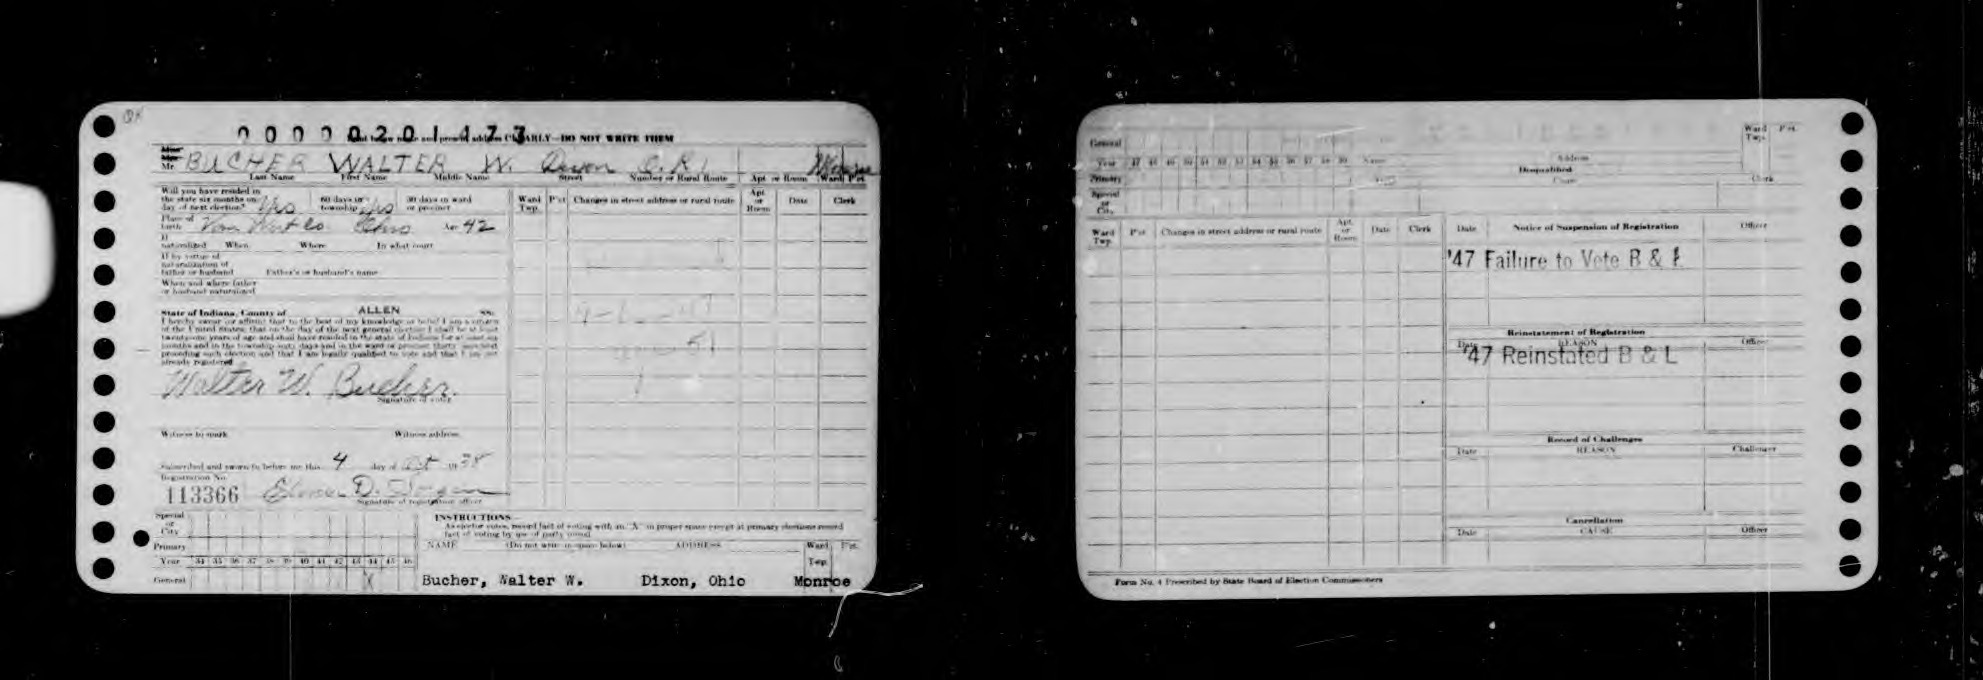 OK
0 0 0 0 0 2 0 1 4 7 7
and present address CLEARLY—DO NOT WRITE THEM
Mr BUCHER WALTER W. Dixon O. R.1 Monroe
Last Name First Name Middle Name Street Number or Rural Route Apt or Room Ward Pct.
Will you have resided in
the state six months on
day of next election? Yes 60 days in township Yes 30 days in ward or precinct
Place of birth Van Wert Co. Ohio Age 42
If naturalized When Where In what court
If by virtue of
naturalization of
father or husband Father's or husband's name
When and where father
or husband naturalized
State of Indiana, County of ALLEN SS:
I hereby swear or affirm that to the best of my knowledge or belief I am a citizen
of the United States; that on the day of the next general election I shall be at least
twenty-one years of age and shall have resided in the state of Indiana for at least six
months and in the township sixty days and in the ward or precinct thirty
preceding such election and that I am legally qualified to vote and that I am not
already registered
Walter W. Bucher.
Signature of voter
Witness to mark Witness address
Subscribed and sworn to before me this 4 day of Oct 1938
Registration No.
113366
Signature of registration officer
Special
or
City
Primary
Year 34 35 36 37 38 39 40 41 42 43 44 45 46
General X
Ward Twp. P'ct Changes in street address or rural route Apt. or Room Date Clerk
INSTRUCTIONS—
As elector votes, record fact of voting with an "X" in proper space except at primary elections record
fact of voting by use of party symbol
NAME (Do not write in space below) ADDRESS Ward Twp. P'ct.
Bucher, Walter W. Dixon, Ohio Monroe
General
Year 47 48 49 50 51 52 53 54 55 56 57 58 59 Name Address Ward Twp. P'ct.
Primary Disqualified
Special
or
City
Date Cause Clerk
Ward Twp. P'ct Changes in street address or rural route Apt. or Room Date Clerk
Date Notice of Suspension of Registration Officer
'47 Failure to Vote B & L
Reinstatement of Registration
Date REASON Officer
'47 Reinstated B & L
Record of Challenges
Date REASON Challenger
Cancellation
Date CAUSE Officer
Form No. 4 Prescribed by State Board of Election Commissioners